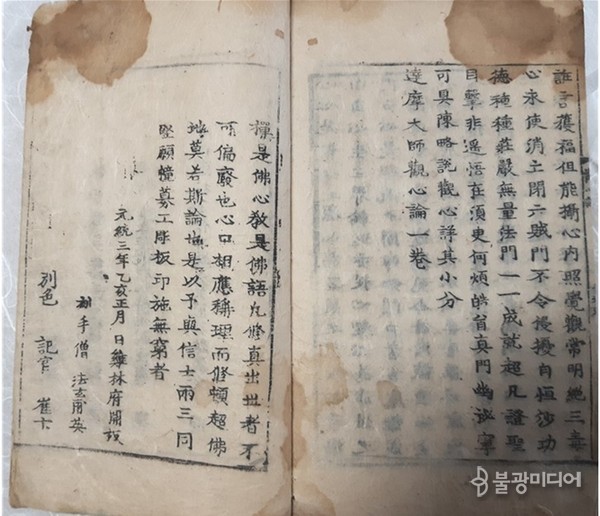 誰言獲福但能攝心內照覺觀常明絶三毒
心永使消亡閉六賊門不令侵擾自恒沙功
德種種莊嚴無量法門一一成就超凡證聖
目擊非遥悟在須臾何煩皓首真門幽秘寧
可具陳略說觀心詳其小分
達摩大師觀心論一卷
禪是佛心敎是佛語凡修真出世者不
可偏廢也心口相應稱理而修頓超佛
地莫若斯論焉是以予與信士兩三同
堅願幢募工彫板印施無窮者
元統三年乙亥正月日雞林府開板
手僧 法玄 英
別色 記官 崔
불광미디어